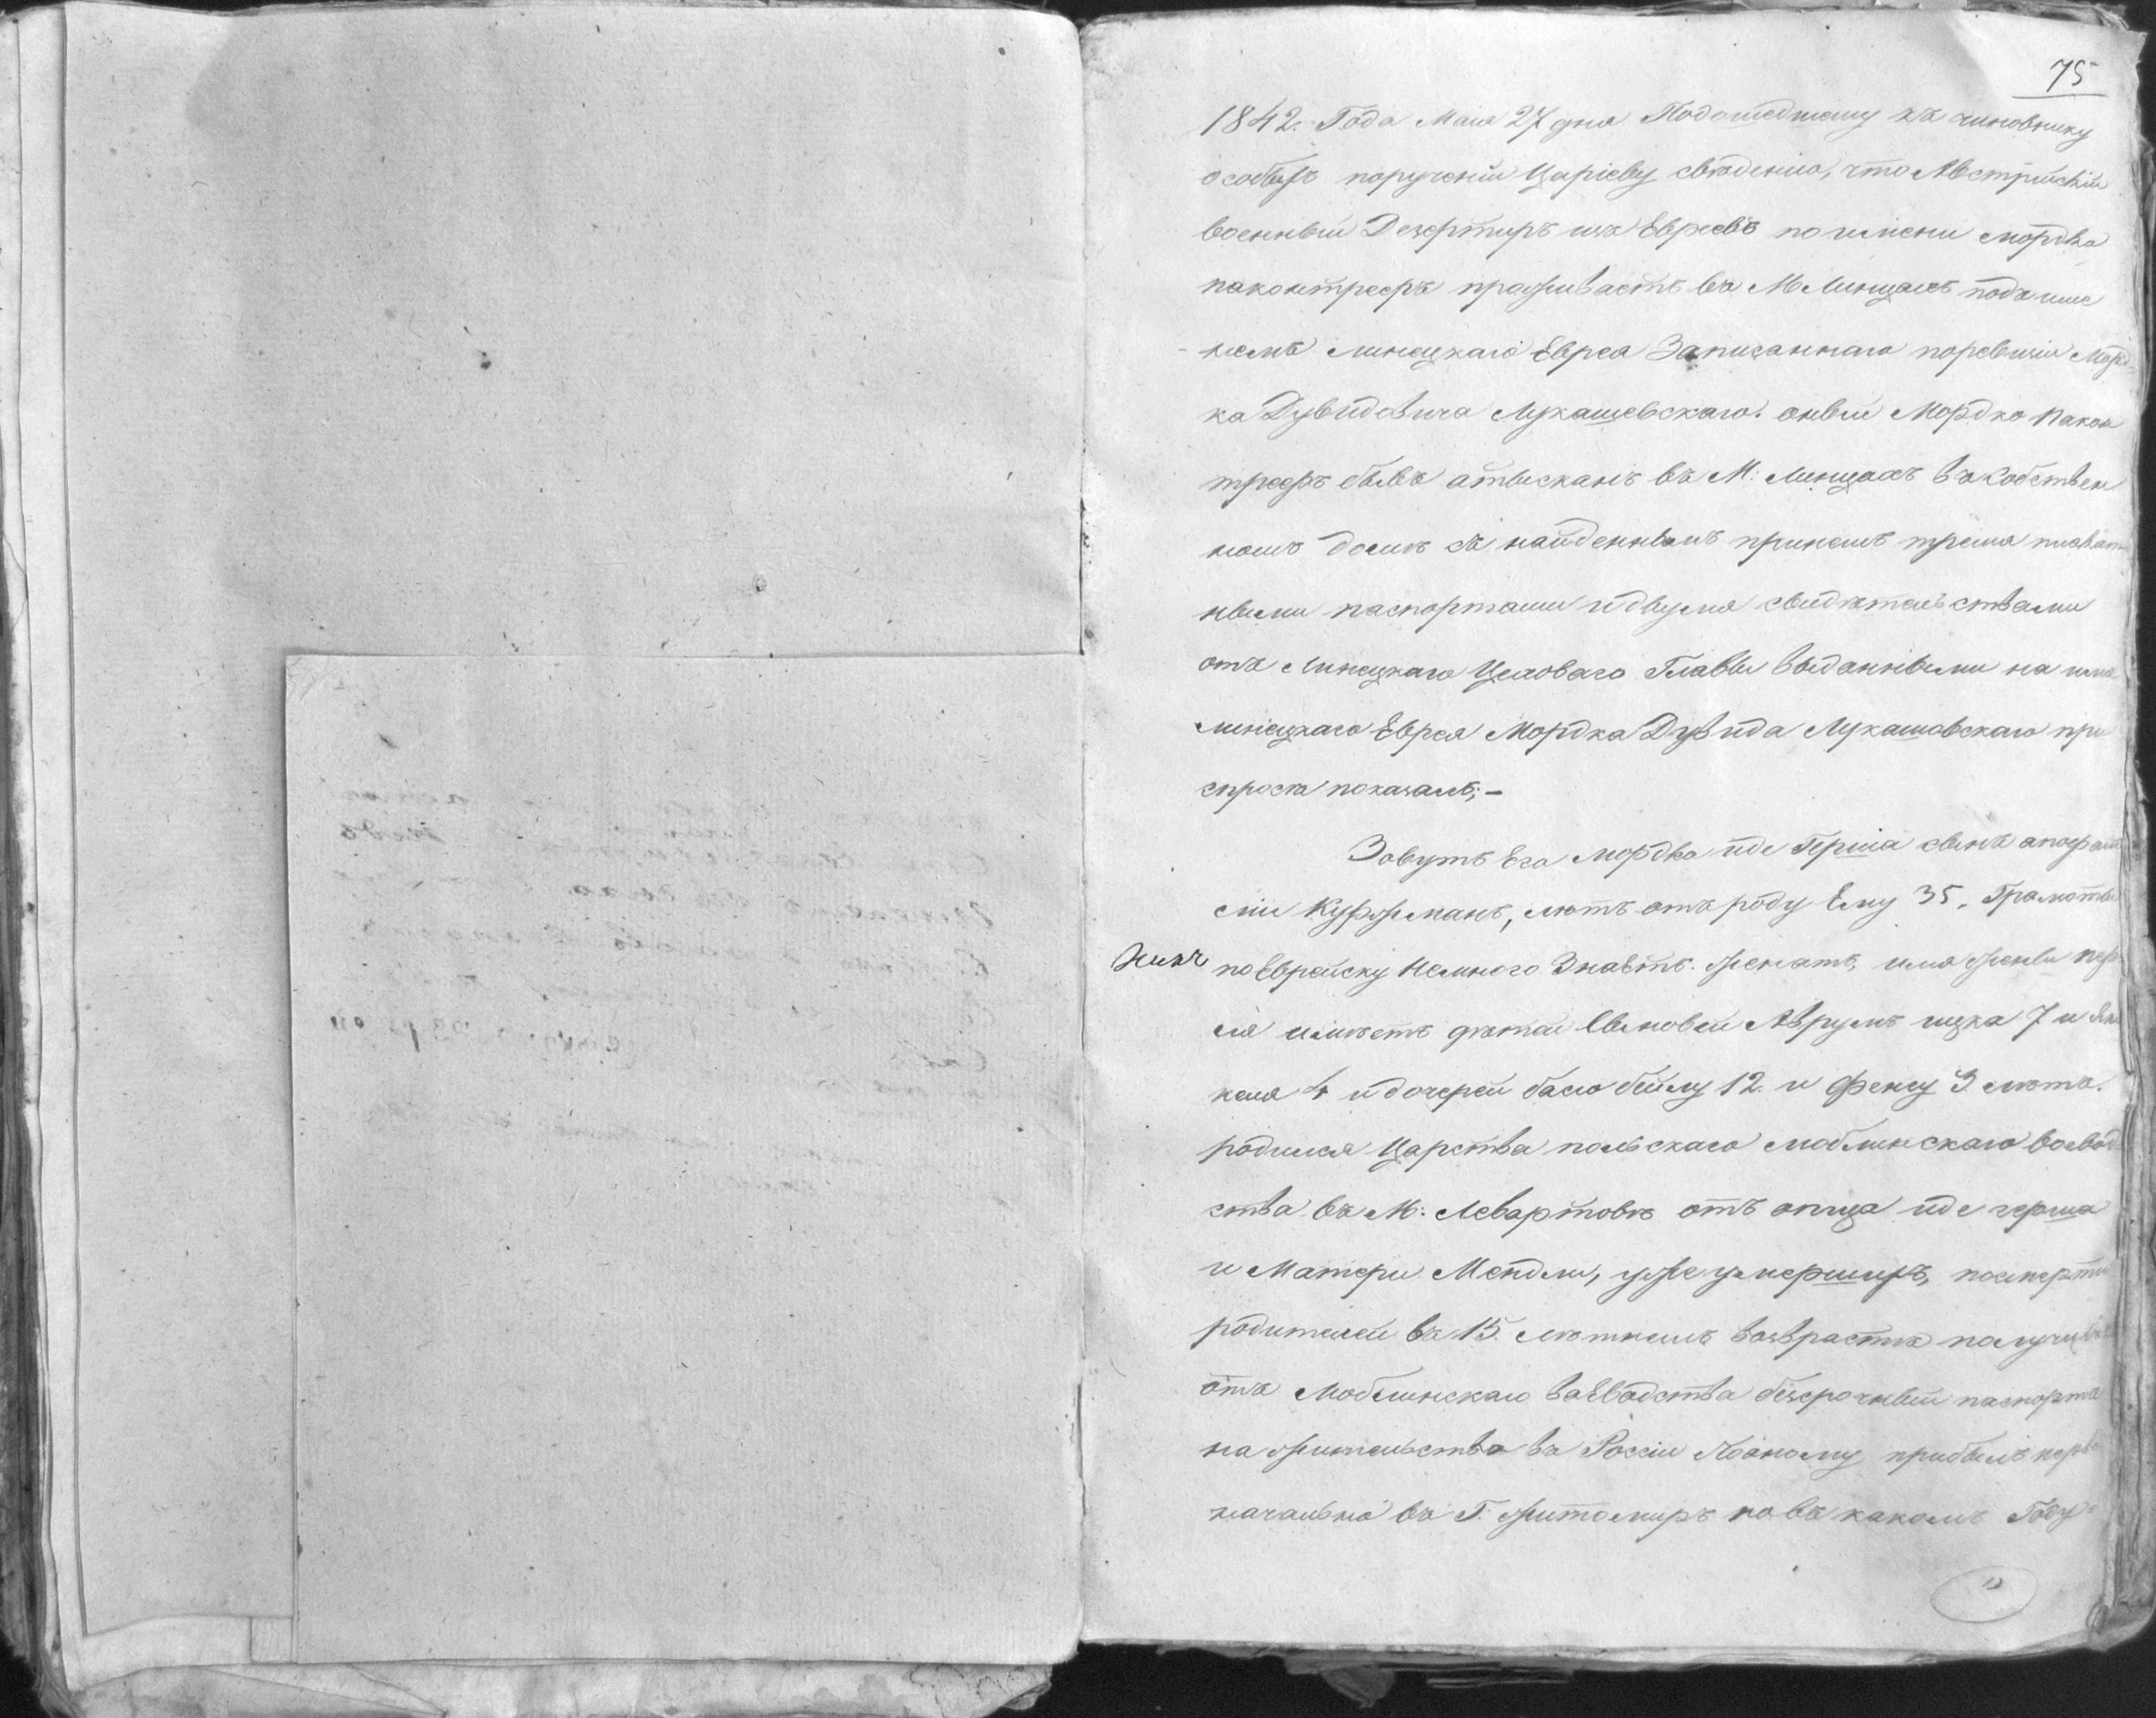 75
1842. Года Мая 27 дня Подошедшему къ чиновнику
особыхъ порученій Царіеву свѣденію, что Австрійскій
военный Дезертиръ изъ Евреевъ по имени Мордко
паконтрееръ проживаетъ въ М Линцахъ подъ име
немъ линецкаго Еврея Записаннаго поревизіи Морд-
ка Дувидовича Лукашевскаго. оный Мордко Пакон
трееръ бывъ атысканъ въ М: Линцахъ въ Собствен
номъ домѣ съ найденными принемъ тремя плакат
ными паспортами и двумя свидѣтельствами
отъ Линецкаго Цеховаго Главы выданными на имя
линецкаго Еврея Мордка Дувида Лукашовскаго при
спросѣ показалъ; –
Зовутъ Его Мордко иде Герша сынъ апофами
ліи Куфжманъ, лѣтъ отъ роду Ему 35, Грамоты
по Еврейску Немного Знаетъ. женатъ, имя жены пер
ля имѣетъ дѣтей Сыновей Аврумъ ицка 7 и Ян
келя 4 и дочерей басю бейлу 12. и Фейгу 3 лѣтъ.
родился Царства польскаго люблинскаго воевод
ства въ М: Левартовѣ отъ отца иде герша
и Матери Мендли, уже умершихъ, посмерти
родителей въ 15. лѣтнемъ возврастѣ получилъ
отъ Люблинскаго ваеводства безсрочный паспортъ
на жительство въ Россіи Поаному прибылъ перво
начально въ Г. Житомиръ новъ какомъ Году